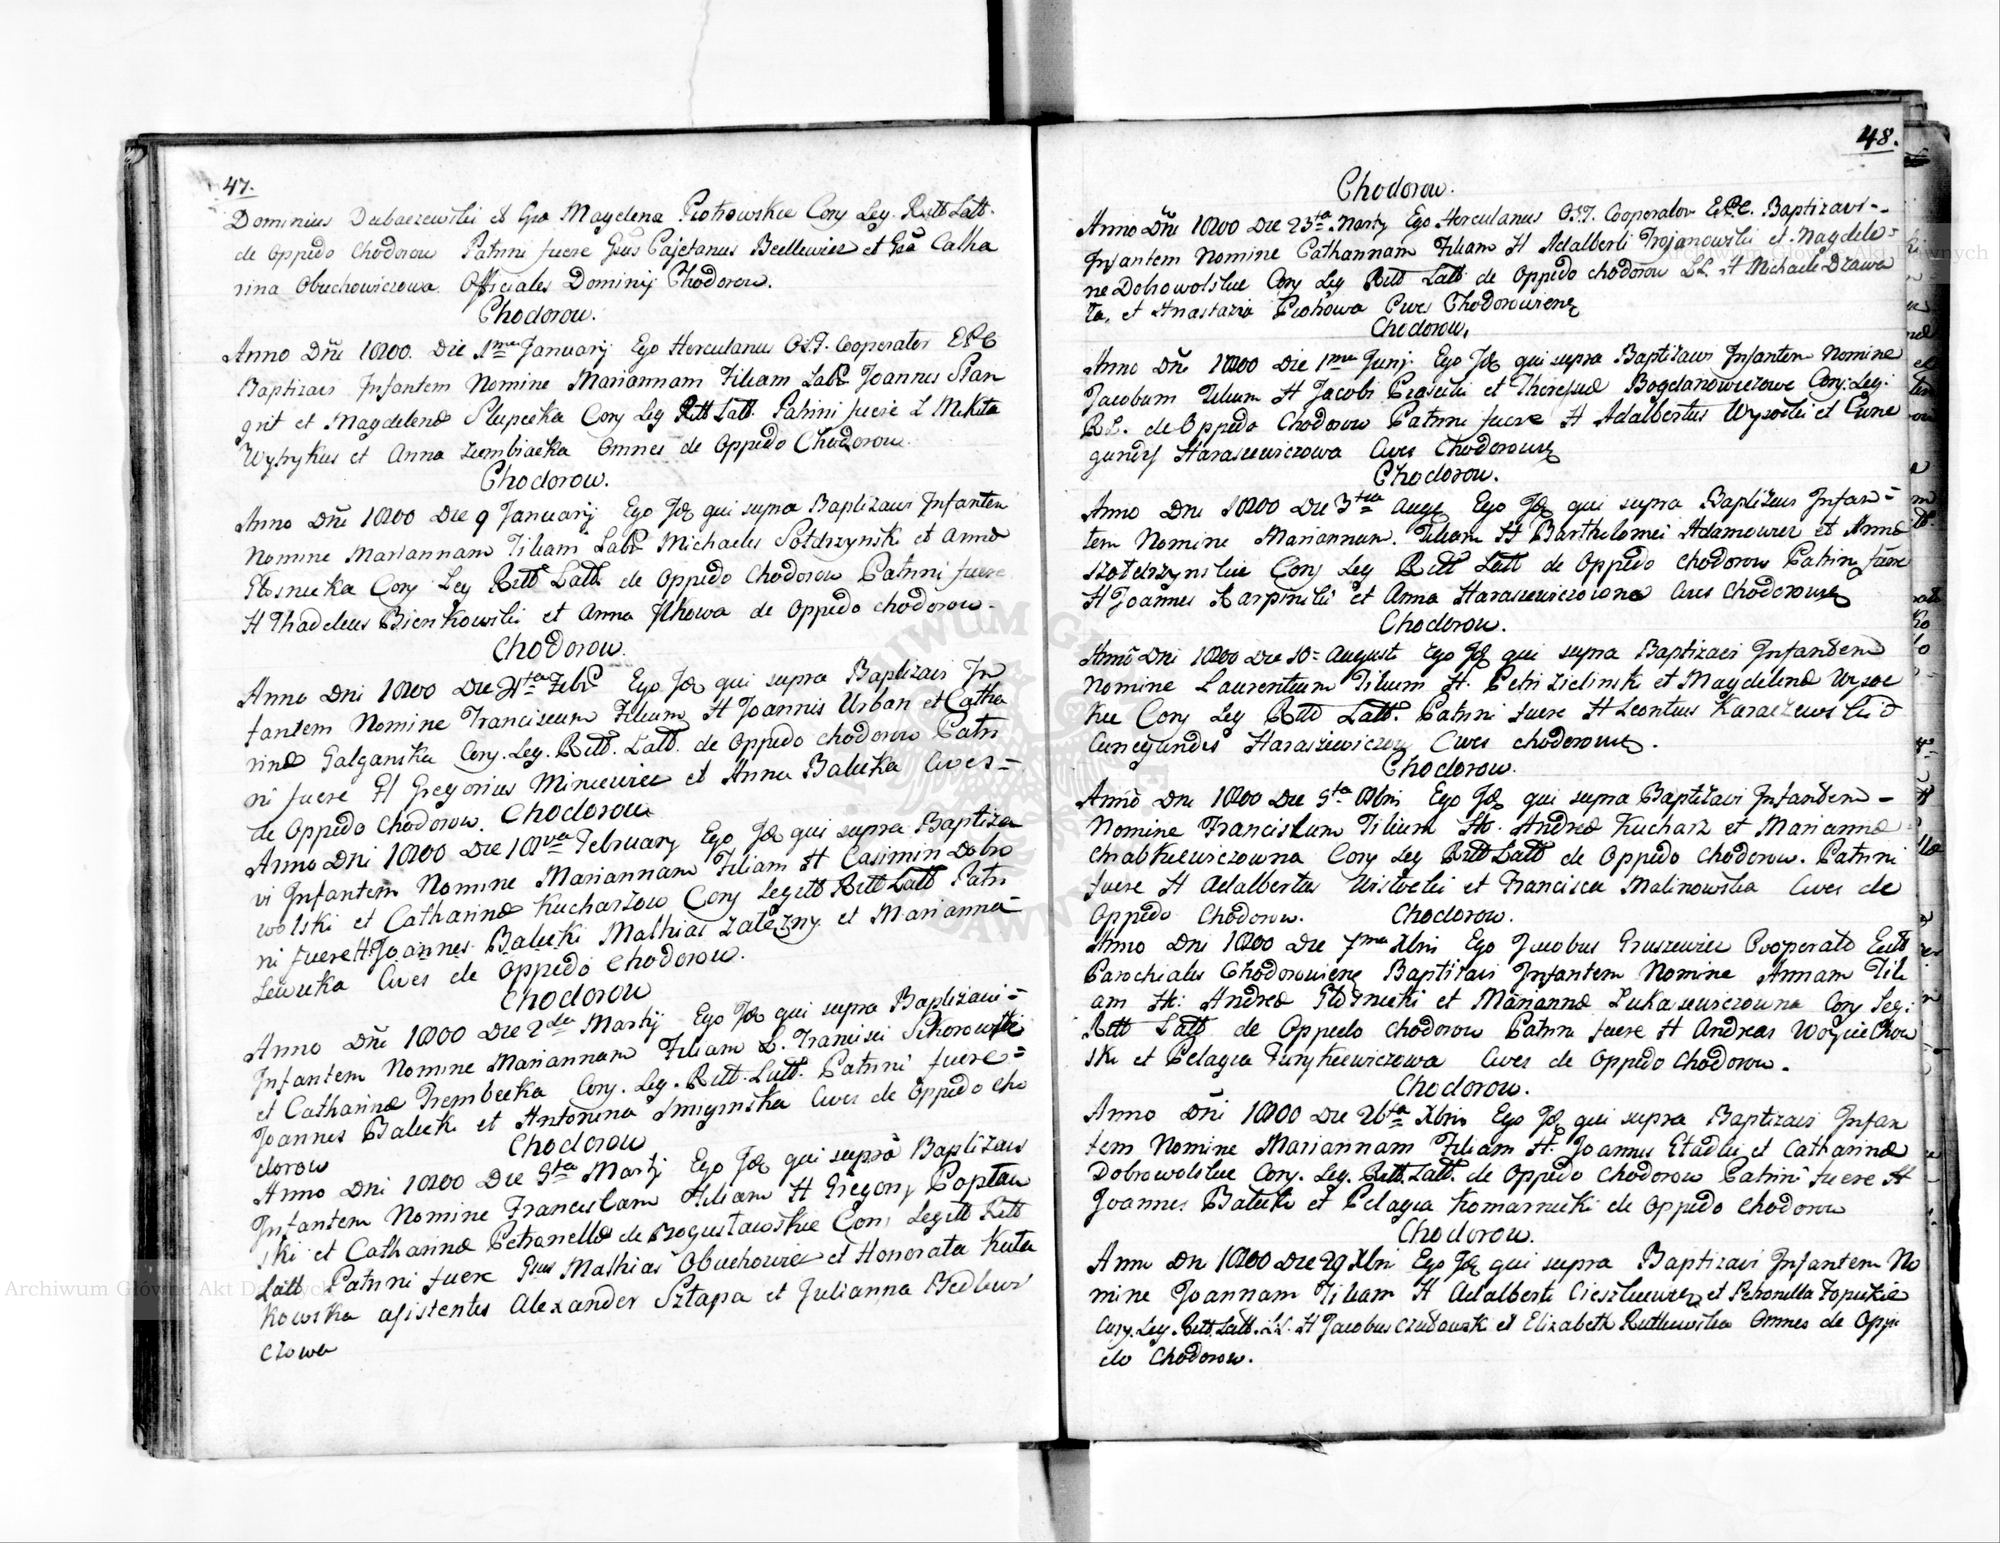 47.
Dominius Dubaczewski et Gsa Magdelena Piotrowskie Conj Leg. Ritt Latt.
de Oppido Chodorow Patrini fuere Gsus Cajetanus Beellewicz et Gsa Catha
rina Obuchowiczowa Officiales Dominij Chodorow.
Chodorow.
Anno Dñi 1800. Die 1ma Januarij Ego Herculanus O.S.T. Cooperator E.P.C
Baptizavi Infantem Nomine Mariannam Filiam Labr Joannis Stan
grit et Magdelenæ Slupecka Conj Leg Ritt Latt. Patrini fuere L Mikita
Wytrykus et Anna Zembiacka Omnes de Oppido Chodorow.
Chodorow.
Anno Dñi 1800 Die 9 Januarij Ego Id qui supra Baptizavi Infantem
Nomine Mariannam Filiam Labr Michaelis Sołdrzynski et Annæ
Conj Leg Ritt Latt. de Oppido Chodorow Patrini fuere
H Thadeus Bienkowski et Anna Ilkowa de Oppido Chodorow.
Chodorow.
Anno Dni 1800 Die Febr Ego Id qui supra Baptizavi In
fantem Nomine Franciscum Filium H Joannis Urban et Catha
rinæ Galganska Conj. Leg. Ritt. Latt. de Oppido Chodorow Patri
ni fuere H Gregorius Miniewicz et Anna Balicka Cives =
de Oppido Chodorow. Chodorow
Anno Dni 1800 Die 18va February Ego Id qui supra Baptiza
vi Infantem Nomine Mariannam Filiam H Casimiri Dobro
wolski et Catharinæ Kucharzow Conj Legitt Ritt Latt Patri
ni fuere H Joannes Balicki Mathias Zalezny et Marianna
Lewicka Cives de Oppido Chodorow.
Chodorow
Anno Dñi 1800 Die 2da Martij Ego Id qui supra Baptizavi =
Infantem Nomine Mariannam Filiam L. Francisci Sikorowski
et Catharinæ Trembecka Conj. Leg. Ritt. Latt. Patrini fuere =
Joannes Balicki et Antonina Smiginska Cives de Oppido Cho
dorow Chodorow
Anno Dni 1800 Die 9ta Martij Ego Id qui supra Baptizavi
Infantem Nomine Franciscam Filiam H Gregorij Poptaw
ski et Catharinæ Petronellæ de Bogusławskie Conj Legitt Ritt
Latt Patrini fuere Gsus Mathias Obuchowicz et Honorata Kuta
kowska assistentes Alexander Sztapa et Julianna Bedlewi
czowa
48.
Chodorow.
Anno Dñi 1800 Die 23ta Martij Ego Herculanus O.S.T. Cooperator E.P.C. Baptizavi -
Infantem Nomine Catharinam Filiam H Adalberti Trojanowski et Magdele =
næ Dobrowolskie Conj Leg Ritt Latt. de Oppido Chodorow LL. H Michaele Dzawa
ta, et Anastazia Piotrowa Cives Chodorowiens
Chodorow.
Anno Dñi 1800 Die 1ma Junij Ego Id qui supra Baptizavi Infantem Nomine
Jacobum Filium H Jacobi Prasecki et Theresiæ Bogdanowiczowe Conj: Leg:
R.L. de Oppido Chodorow Patrini fuere H Adalbertus Wysocki et Cune
gundis Haraszewiczowa Cives Chodorowiens
Chodorow.
Anno Dni 1800 Die 3tia Augs Ego Id qui supra Baptizavi Infan =
tem Nomine Mariannam. Filiam H Bartholomei Adamowicz et Annæ
Szołdrzynskie Conj Leg Ritt Latt de Oppido Chodorow Patrini fuere
H Joannes Karpinski et Anna Haraszewiczowna Cives Chodorowiens
Chodorow.
Anno Dni 1800 Die 10= Augusti Ego Id qui supra Baptizavi Infantem
Nomine Laurentium Filium H. Petri Zielinski et Magdelenæ Wysoc
kie Conj Leg Ritt Latt. Patrini fuere H Leontius Karaczewski &
Cunegundis Haraszewiczow Cives Chodorowiens.
Chodorow.
Anno Dni 1800 Die 9ta Ego Id qui supra Baptizavi Infantem -
Nomine Franciscum Filium H. Andreæ Kucharz et Mariannæ
Chrabkiewiczowna Conj Leg Ritt Latt de Oppido Chodorow. Patrini
fuere H Adalbertus et Francisca Malinowska Cives de
Oppido Chodorow. Chodorow.
Anno Dni 1800 Die 7ma Xbris Ego Jacobus Gruszewicz Cooperato Eccls
Parochialis Chodorowiens Baptizavi Infantem Nomine Annam Fili
am H: Andreæ et Mariannæ Lukasiewiczowna Conj Leg:
Ritt Latt de Oppido Chodorow Patrini fuere H Andreas Woyciechow
ski et Pelagia Jurykiewiczowa Cives de Oppido Chodorow.
Chodorow.
Anno Dñi 1800 Die 26ta Xbris Ego Id qui supra Baptizavi Infan
tem Nomine Mariannam Filiam H. Joannis et Catharinæ
Dobrowolskie Conj. Leg. Ritt. Latt. de Oppido Chodorow Patrini fuere H
Joannes Balicki et Pelagia Komarnicki de Oppido Chodorow
Chodorow.
Anno Dni 1800 Die 29 Xbris Ego Id qui supra Baptizavi Infantem No
mine Joannam Filiam H Adalberti Cieszkiewicz et Petronella Topickie
Conj. Leg. Ritt. Latt. LL. H Jacobus et Elizabeth Rutkowska Omnes de Oppi
do Chodorow.
Archiwum Główne Akt Dawnych
Archiwum Główne Akt Dawnych